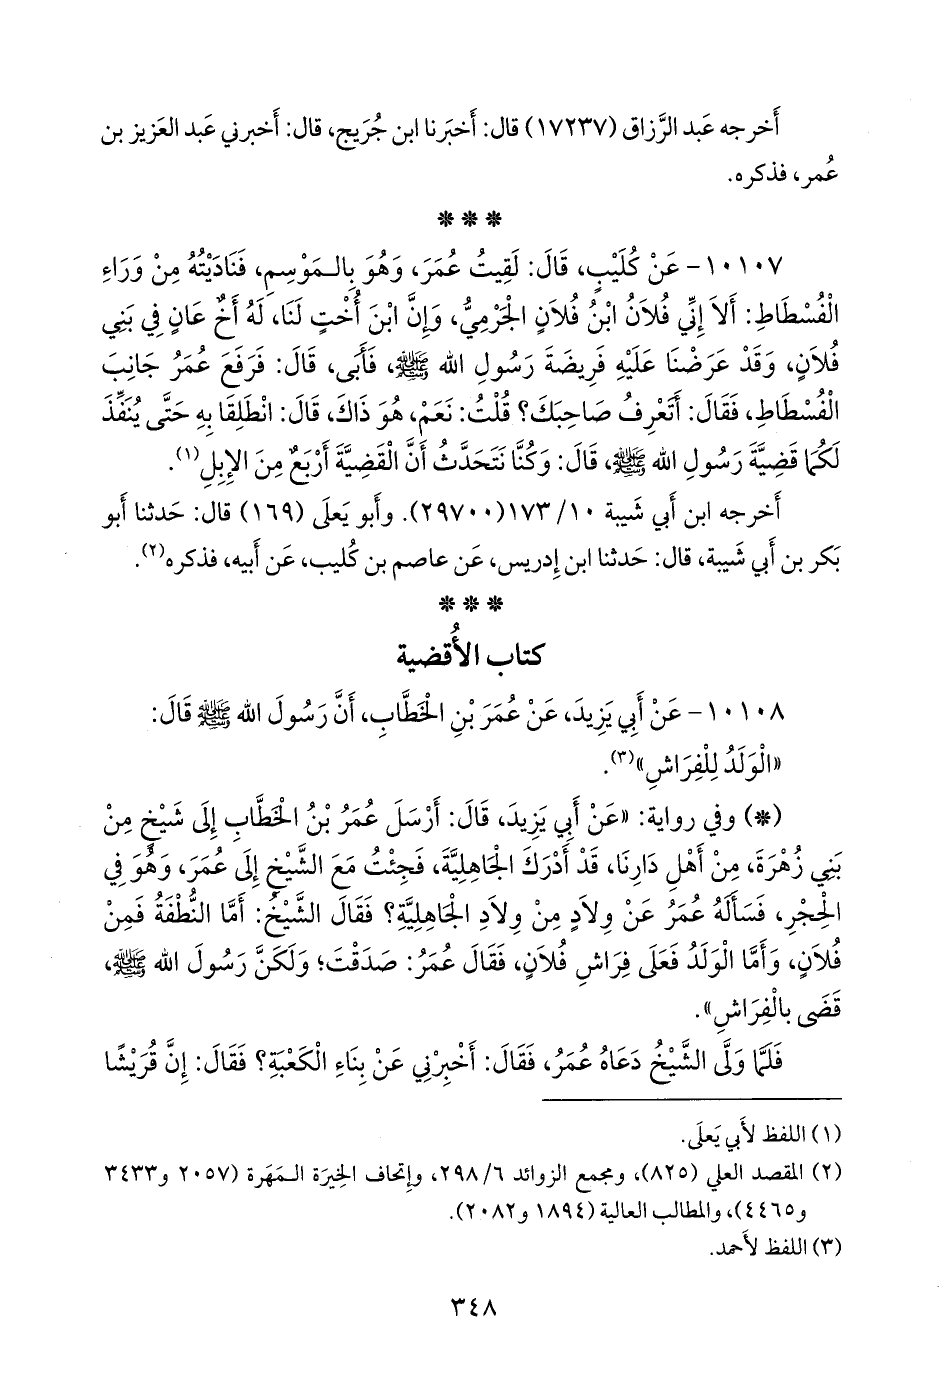 أَخرجه عَبد الرَّزاق (١٧٢٣٧) قال: أَخبَرنا ابن جُرَيج، قال: أَخبرني عَبد العَزيز بن
عُمر، فذكره.
* * *
١٠١٠٧- عَنْ كُلَيْبٍ، قَالَ: لَقِيتُ عُمَرَ، وَهُوَ بِالـمَوْسِمِ، فَنَادَيْتُهُ مِنْ وَرَاءِ
الْفُسْطَاطِ: أَلاَ إِنِّي فُلاَنُ ابْنُ فُلاَنٍ الجَرْمِيُّ، وَإِنَّ ابْنَ أُخْتٍ لَنَا، لَهُ أَخٌ عَانٍ فِي بَنِي
فُلاَنٍ، وَقَدْ عَرَضْنَا عَلَيْهِ فَرِيضَةَ رَسُولِ الله ﷺ، فَأَبَى، قَالَ: فَرَفَعَ عُمَرُ جَانِبَ
الْفُسْطَاطِ، فَقَالَ: أَتَعْرِفُ صَاحِبَكَ؟ قُلْتُ: نَعَمْ، هُوَ ذَاكَ، قَالَ: انْطَلِقَا بِهِ حَتَّى يُنَفِّذَ
لَكُمَا قَضِيَّةَ رَسُولِ الله ﷺ، قَالَ: وَكُنَّا نَتَحَدَّثُ أَنَّ الْقَضِيَّةَ أَرْبَعٌ مِنَ الإِبِلِ(١).
أَخرجه ابن أَبي شَيبة ١٠/ ١٧٣(٢٩٧٠٠). وأَبو يَعلَى (١٦٩) قال: حَدثنا أَبو
بَكر بن أَبي شَيبة، قال: حَدثنا ابن إِدريس، عَن عاصم بن كُليب، عَن أَبيه، فذكره(٢).
* * *
كتاب الأُقضية
١٠١٠٨- عَنْ أَبِي يَزِيدَ، عَنْ عُمَرَ بْنِ الخَطَّابِ، أَنَّ رَسُولَ الله ﷺ قَالَ:
«الْوَلَدُ لِلْفِرَاشِ»(٣).
(*) وفي رواية: «عَنْ أَبِي يَزِيدَ، قَالَ: أَرْسَلَ عُمَرُ بْنُ الخَطَّابِ إِلَى شَيْخٍ مِنْ
بَنِي زُهْرَةَ، مِنْ أَهْلِ دَارِنَا، قَدْ أَدْرَكَ الجَاهِلِيَّةَ، فَجِئْتُ مَعَ الشَّيْخِ إِلَى عُمَرَ، وَهُوَ فِي
الحِجْرِ، فَسَأَلَهُ عُمَرُ عَنْ وِلاَدٍ مِنْ وِلاَدِ الجَاهِلِيَّةِ؟ فَقَالَ الشَّيْخُ: أَمَّا النُّطْفَةُ فَمِنْ
فُلاَنٍ، وَأَمَّا الْوَلَدُ فَعَلَى فِرَاشِ فُلاَنٍ، فَقَالَ عُمَرُ: صَدَقْتَ؛ وَلَكَنَّ رَسُولَ الله ﷺ،
قَضَى بِالْفِرَاشِ».
فَلَمَّا وَلَّى الشَّيْخُ دَعَاهُ عُمَرُ، فَقَالَ: أَخْبِرْنِي عَنْ بِنَاءِ الْكَعْبَةِ؟ فَقَالَ: إِنَّ قُرَيْشًا
(١) اللفظ لأَبي يَعلَى.
(٢) المقصد العلي (٨٢٥)، ومجمع الزوائد ٦/ ٢٩٨، وإتحاف الخِيرَة الـمَهَرة (٢٠٥٧ و٣٤٣٣
و٤٤٦٥)، والمطالب العالية (١٨٩٤ و٢٠٨٢).
(٣) اللفظ لأَحمد.
٣٤٨